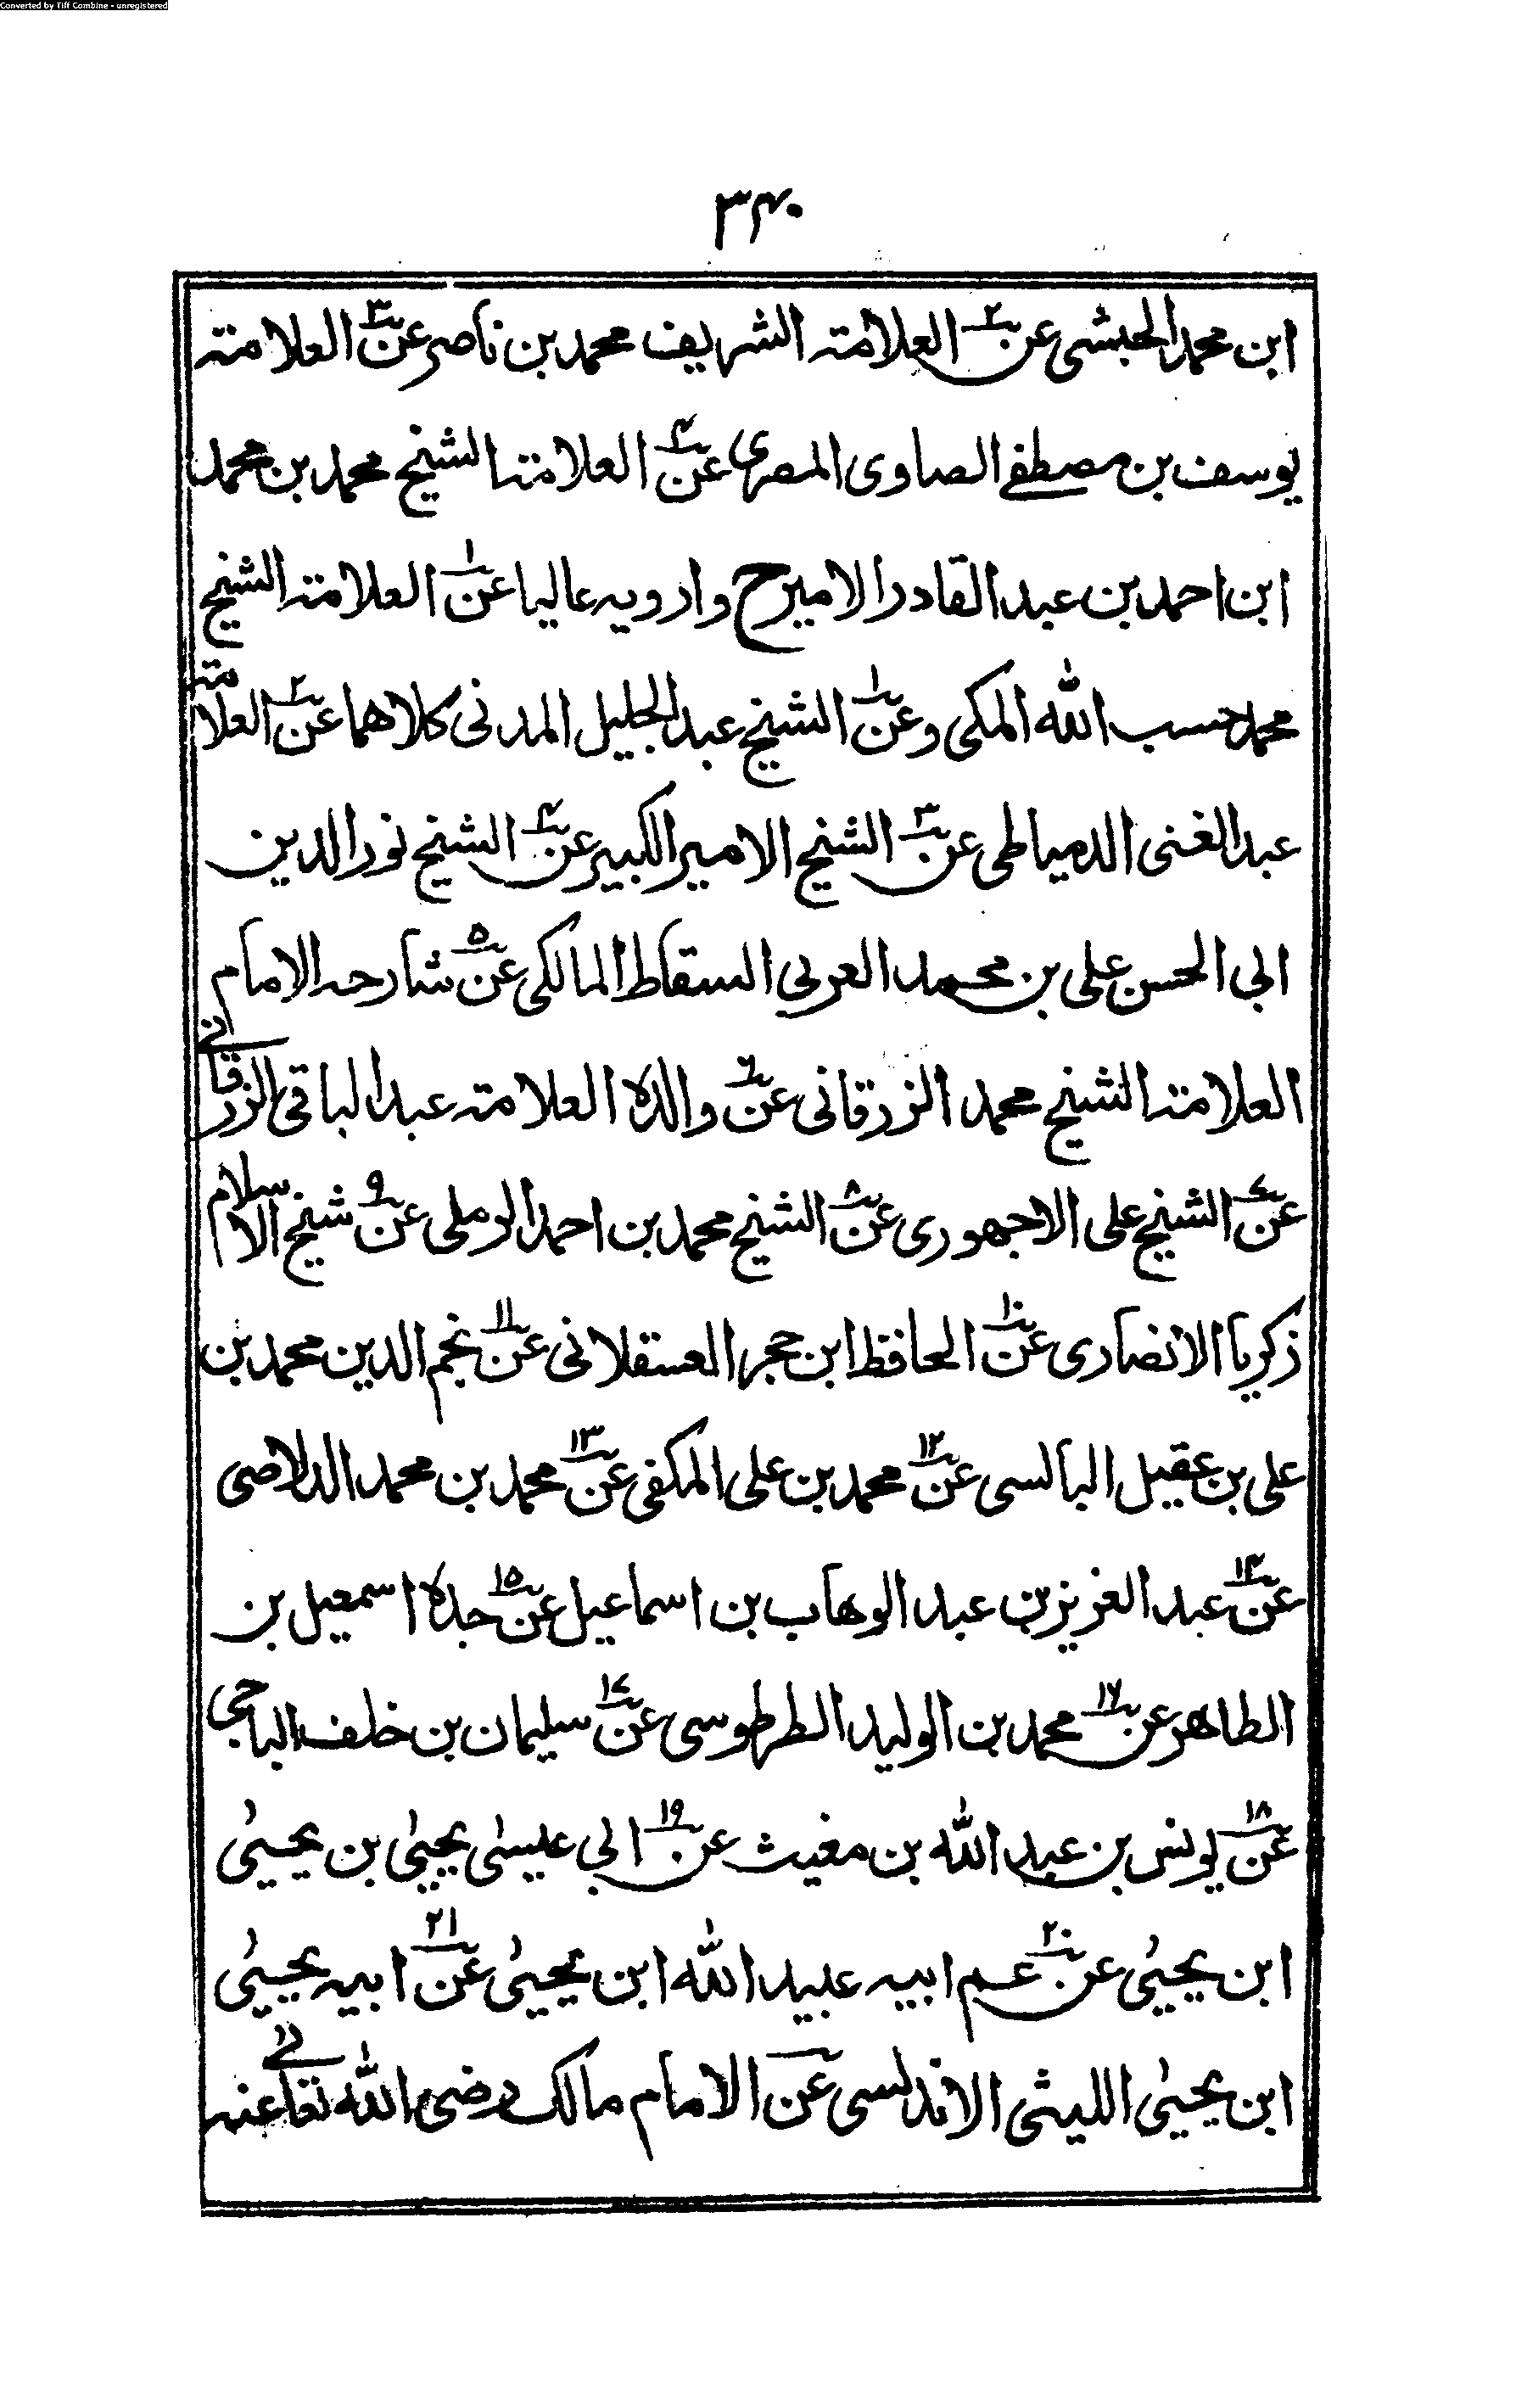 Converted by Tiff Combine - unregistered
۳۴۰
ابن محمد الحبشی عن۲ العلامته الشریف محمد بن ناصر عن۳ العلامته
یوسف بن مصطفے الصاوی المصری عن۴ العلامته الشیخ محمد بن محمد
ابن احمد بن عبد القادر الامیر ح وارویه عالیا عن۱ العلامته الشیخ
محمد حسب الله المکی وعن۱ الشیخ عبد الجلیل المدنی کلاهما عن۲ العلامته
عبد الغنی الدمیاطی عن۳ الشیخ الامیر الکبیر عن۴ الشیخ نور الدین
ابی الحسن علی بن محمد العربی السقاط المالکی عن۵ شارحه الامام
العلامته الشیخ محمد الزرقانی عن۶ والده العلامته عبد الباقی الزرقانے
عن۷ الشیخ علی الاجهوری عن۸ الشیخ محمد بن احمد الرملی عن۹ شیخ الاسلام
زکریا الانصاری عن۱۰ الحافظ ابن حجر العسقلانی عن۱۱ نجم الدین محمد بن
علی بن عقیل البالسی عن۱۲ محمد بن علی المکفی عن۱۳ محمد بن محمد الدلاصی
عن۱۴ عبد العزیز بن عبد الوهاب بن اسماعیل عن۱۵ جده اسمعیل بن
الطاهر عن۱۶ محمد بن الولید الطرطوسی عن۱۷ سلیمان بن خلف الباجی
عن۱۸ یونس بن عبد الله بن مغیث عن۱۹ ابی عیسٰی یحییٰ بن یحییٰ
ابن یحییٰ عن۲۰ عم ابیه عبید الله ابن یحییٰ عن۲۱ ابیه یحییٰ
ابن یحییٰ اللیثی الاندلسی عن الامام مالک رضی الله تعالے عنه